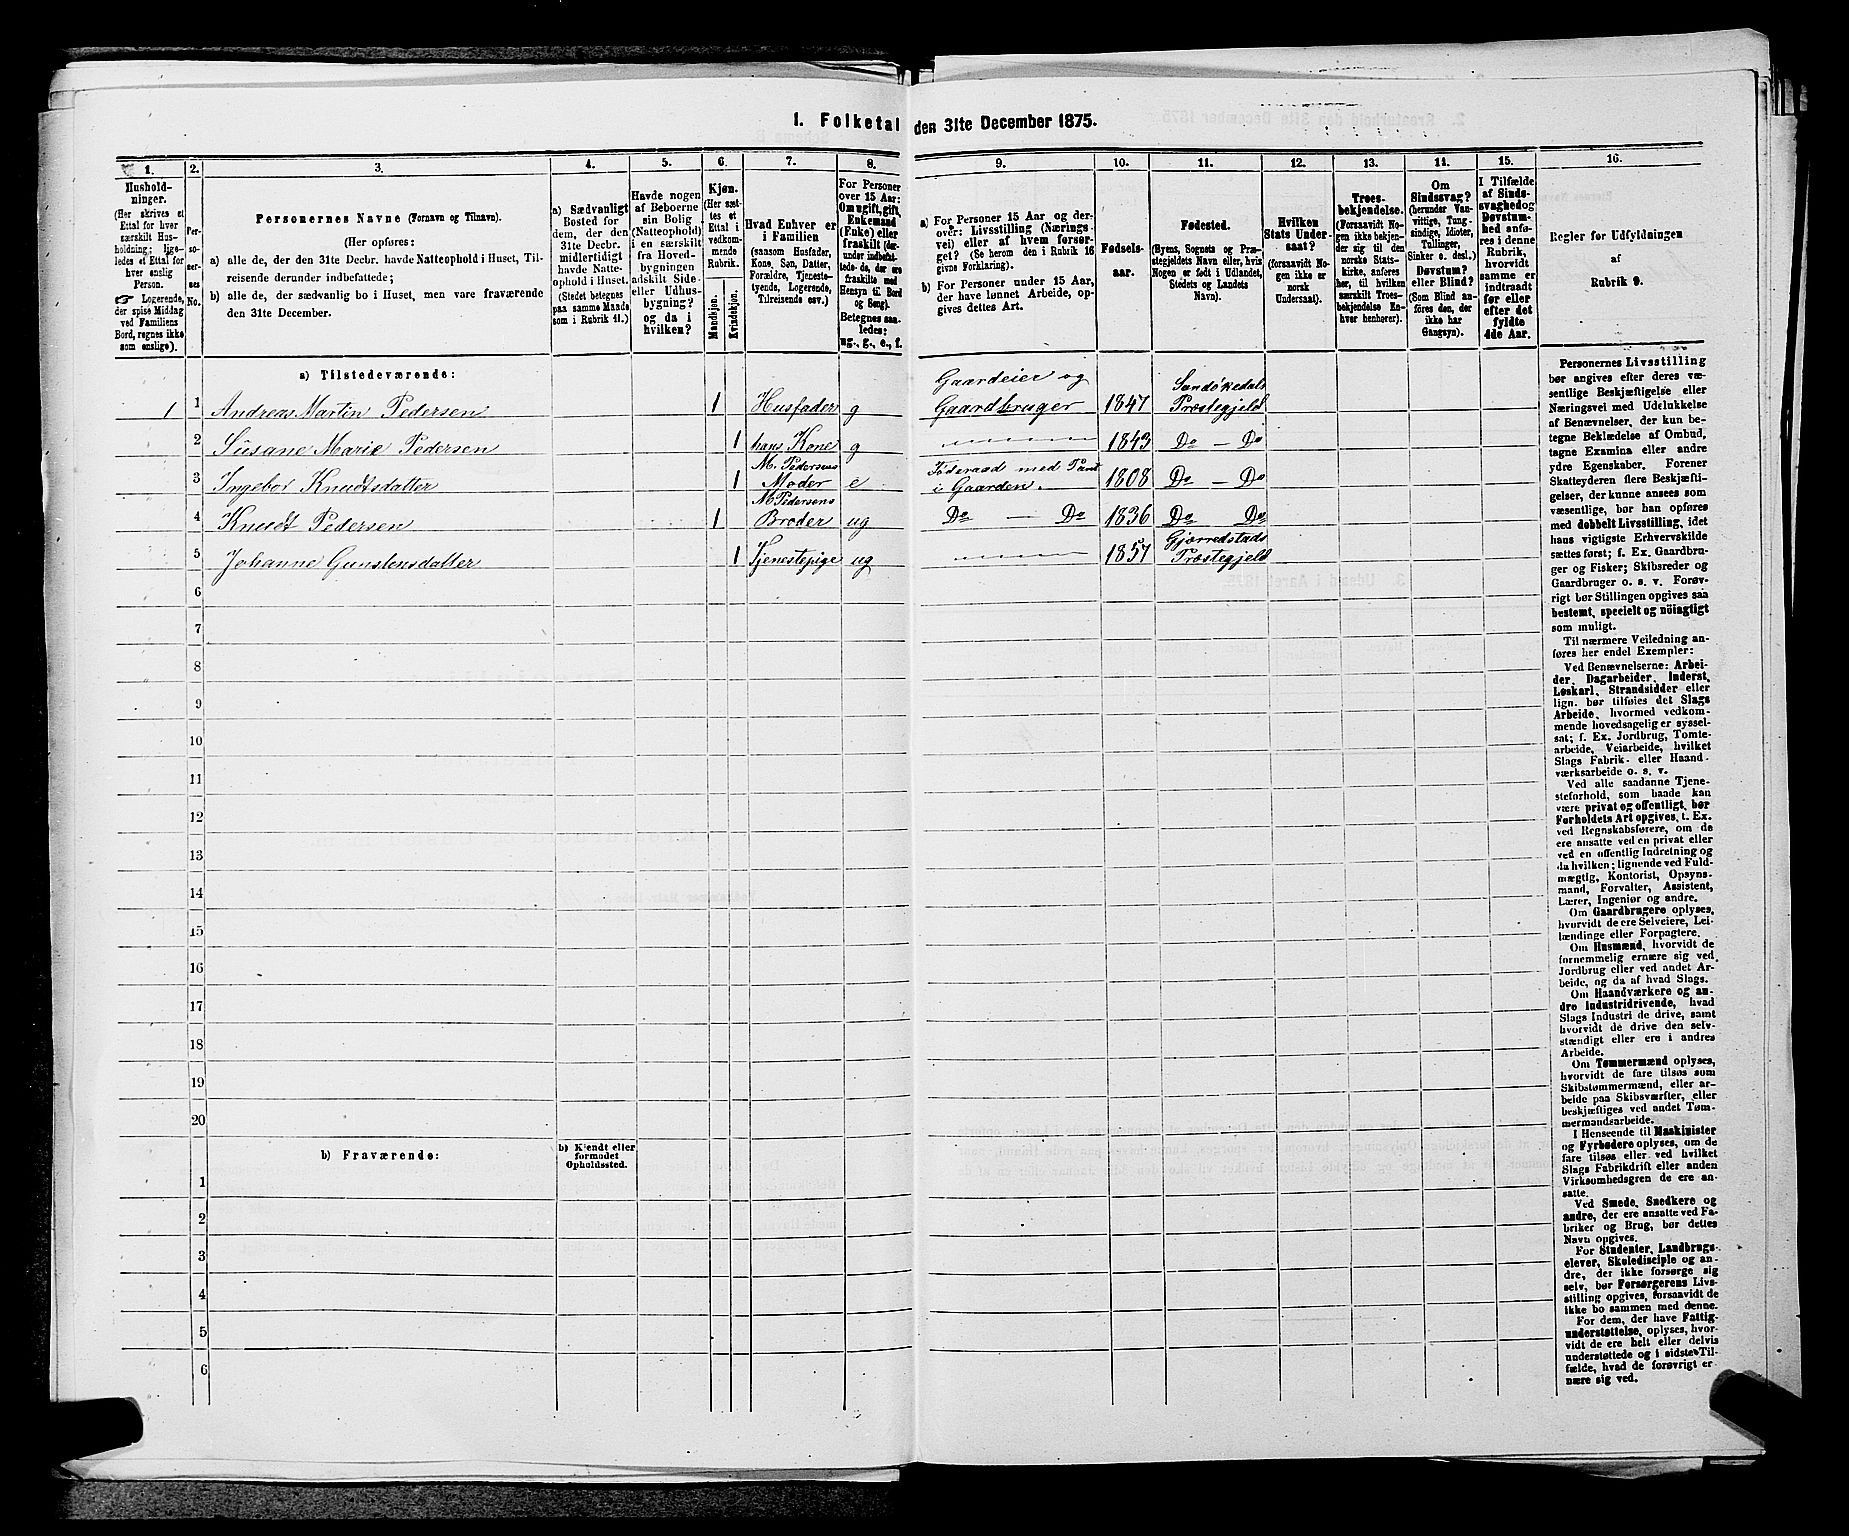 1. Folketal den 31te December 1875.
1. 2. 3. 4. 5. 6. 7. 8. 9. 10. 11. 12. 13. 14. 15. 16.
Hushold-
ninger.
(Her skrives et
Ettal for hver
særskilt Hus-
holdning; lige-
ledes et Ettal for
hver enslig
Person.
☞ Logerende,
der spise Middag
ved Familiens
Bord, regnes ikke
som enslige).
Per-
so-
ner-
nes
No.
Personernes Navne (Fornavn og Tilnavn).
(Her opføres:
a) alle de, der den 31te Decbr. havde Natteophold i Huset, Til-
reisende derunder indbefattede;
b) alle de, der sædvanlig bo i Huset, men vare fraværende
den 31te December.
a) Sædvanligt
Bosted for
dem, der den
31te Decbr.
midlertidigt
havde Natte-
ophold i Huset.
(Stedet betegnes
paa samme Maade
som i Rubrik 11.)
Havde nogen
af Beboerne
sin Bolig
(Natteophold)
i en særskilt
fra Hoved-
bygningen
adskilt Side-
eller Udhus-
bygning?
og da i
hvilken?
Kjøn.
(Her sæt-
tes et
Ettal i
vedkom-
mende
Rubrik.
Mandkjøn.
Kvindekjøn.
Hvad Enhver er
i Familien
(saasom Husfader,
Kone, Søn, Datter,
Forældre, Tjeneste-
tyende, Logerende,
Tilreisende osv.)
For Personer
over 15 Aar:
Om ugift, gift,
Enkemand
(Enke) eller
fraskilt (der-
under indbefat-
tede de, der ere
fraskilte med
Hensyn til Bord
og Seng).
Betegnes saa-
ledes:
ug., g., e., f.
a) For Personer 15 Aar og der-
over: Livsstilling (Nærings-
vei) eller af hvem forsør-
get? (Se herom den i Rubrik 16
givne Forklaring).
b) For Personer under 15 Aar,
der have lønnet Arbeide, op-
gives dettes Art.
Fødsels-
aar.
Fødested.
(Byens, Sognets og Præ-
stegjeldets Navn eller, hvis
Nogen er født i Udlandet,
Stedets og Landets
Navn).
Hvilken
Stats Under-
saat?
(forsaavidt No-
gen ikke er
norsk
Undersaat).
Troes-
bekjendelse.
(Forsaavidt No-
gen ikke bekjen-
der sig til den
norske Stats-
kirke, anføres
her, til hvilken
særskilt Troes-
bekjendelse En-
hver henhører).
Om
Sindssvag?
(herunder Van-
vittige, Tung-
sindige, Idioter,
Tullinger,
Sinker o. desl.)
Døvstum?
eller Blind?
(Som Blind an-
føres den, der
ikke har
Gangsyn).
I Tilfælde
af Sinds-
svaghed og
Døvstum-
hed anfø-
res i denne
Rubrik,
hvorvidt
samme er
indtraadt
før eller
efter det
fyldte
4de Aar.
Regler for Udfyldningen
af
Rubrik 9.
a) Tilstedeværende:
1 1 Andreas Martin Pedersen 1 Husfader g Gaardeier og Gaardbruger 1847 Sandøkedals Præstegjeld
2 Susane Marie Pedersen 1 hans Kone g 1843 Do — Do
3 Ingebor Knudtsdatter 1 M. Pedersens Moder e Føderaad med Part i Gaarden. 1808 Do — Do
4 Knudt Pedersen 1 M Pedersens Broder ug Do — Do 1836 Do Do
5 Johanne Gunstensdatter 1 Tjenestepige ug 1857 Gjerrestads Præstegjeld
6
7
8
9
10
11
12
13
14
15
16
17
18
19
20
b) Fraværende:
b) Kjendt eller
formodet
Opholdssted.
1
2
3
4
5
6
Personernes Livsstilling
bør angives efter deres væ-
sentlige Beskjæftigelse eller
Næringsvei med Udelukkelse
af Benævnelser, der kun be-
tegne Beklædelse af Ombud,
tagne Examina eller andre
ydre Egenskaber. Forener
Skatteyderen flere Beskjæfti-
gelser, der kunne ansees som
væsentlige, bør han opføres
med dobbelt Livsstilling, idet
hans vigtigste Erhvervskilde
sættes først; f. Ex. Gaardbru-
ger og Fisker; Skibsreder og
Gaardbruger o. s. v. Forøv-
rigt bør Stillingen opgives saa
bestemt, specielt og nöiagtigt
som muligt.
Til nærmere Veiledning an-
føres her endel Exempler:
Ved Benævnelserne: Arbei-
der, Dagarbeider, Inderst,
Løskarl, Strandsidder eller
lign. bør tilføies det Slags
Arbeide, hvormed vedkom-
mende hovedsagelig er syssel-
sat; f. Ex. Jordbrug, Tomte-
arbeide, Veiarbeide, hvilket
Slags Fabrik- eller Haand-
værksarbeide o. s. v.
Ved alle saadanne Tjene-
steforhold, som baade kan
være privat og offentligt, bør
Forholdets Art opgives, t. Ex.
ved Regnskabsførere, om de
ere ansatte ved en privat eller
ved en offentlig Indretning og
da hvilken; lignende ved Fuld-
mægtig, Kontorist, Opsyns-
mand, Forvalter, Assistent,
Lærer, Ingeniør og andre.
Om Gaardbrugere oplyses,
hvorvidt de ere Selveiere, Lei-
lændinge eller Forpagtere.
Om Husmænd, hvorvidt de
fornemmelig ernære sig ved
Jordbrug eller ved andet Ar-
beide, og da af hvad Slags.
Om Haandværkere og an-
dre Industridrivende, hvad
Slags Industri de drive, samt
hvorvidt de drive den selv-
stændigt eller ere i andres
Arbeide.
Om Tømmermænd oplyses,
hvorvidt de fare tilsøs som
Skibstømmermænd, eller ar-
beide paa Skibsværfter, eller
beskjæftiges ved andet Tøm-
mermandsarbeide.
I Henseende til Maskinister
og Fyrbødere oplyses, om de
fare tilsøs eller ved hvilket
Slags Fabrikdrift eller anden
Virksomhedsgren de ere an-
satte.
Ved Smede, Snedkere og
andre, der ere ansatte ved Fa-
briker og Brug, bør dettes
Navn opgives.
For Studenter, Landbrugs-
elever, Skoledisciple og an-
dre, der ikke forsørge sig
selv, bør Forsørgerens Livs-
stilling opgives, forsaavidt de
ikke bo sammen med denne.
For dem, der have Fattig-
understøttelse, oplyses, hvor-
vidt de ere helt eller delvis
understøttede og i sidste Til-
fælde, hvad de forøvrigt er-
nære sig ved.